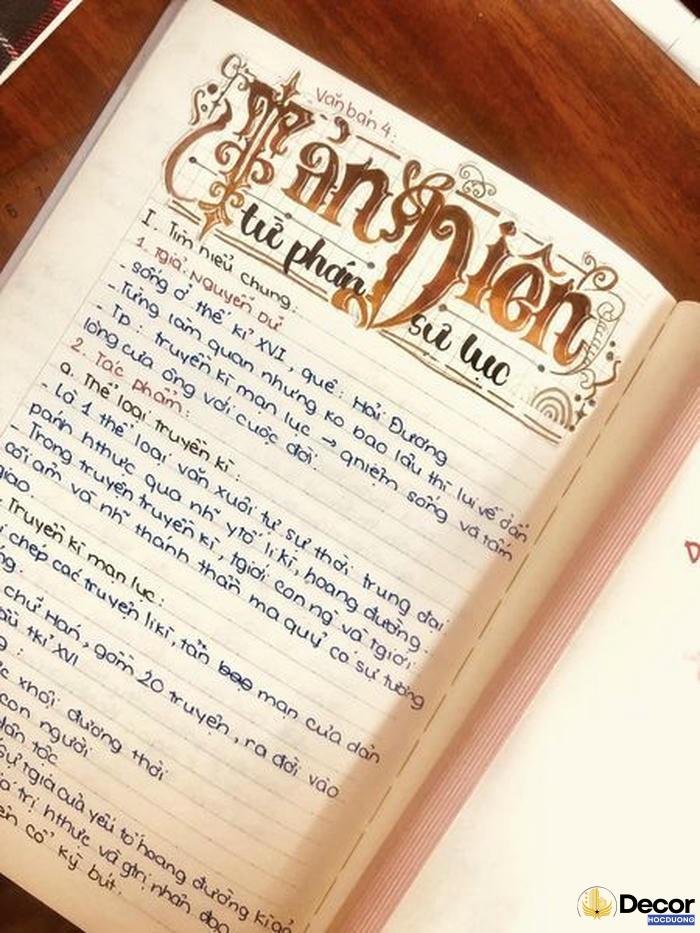 Văn bản 4:
Tản Viên
từ phán
sự lục
I. Tìm hiểu chung:
1. Tgiả: Nguyễn Dữ
- sống ở thế kỉ XVI, quê: Hải Dương
- Từng làm quan nhưng ko bao lâu thì lui về ẩn
- Tp: truyền kì mạn lục → qniệm sống và tấm
lòng của ông với cuộc đời.
2. Tác phẩm:
a. Thể loại truyền kì:
- là 1 thể loại văn xuôi tự sự thời trung đại
pánh hthực qua nh~ ytố li kì, hoang đường.
- Trong truyện truyền kì, tgiới con ng và tgiới
cõi âm và nh~ thánh thần ma quỷ có sự tương
giao.
Truyền kì mạn lục:
chép các truyện li kì, tản mạn của dân
chữ Hán, gồm 20 truyện, ra đời vào
tkỉ XVI
khỏi đương thời
con người
dân tộc
sự tgia của yếu tố hoang đường kì ảo
trị hthực và gtrị nhân đạo
cổ kỳ bút.
Decor
HOCDUONG